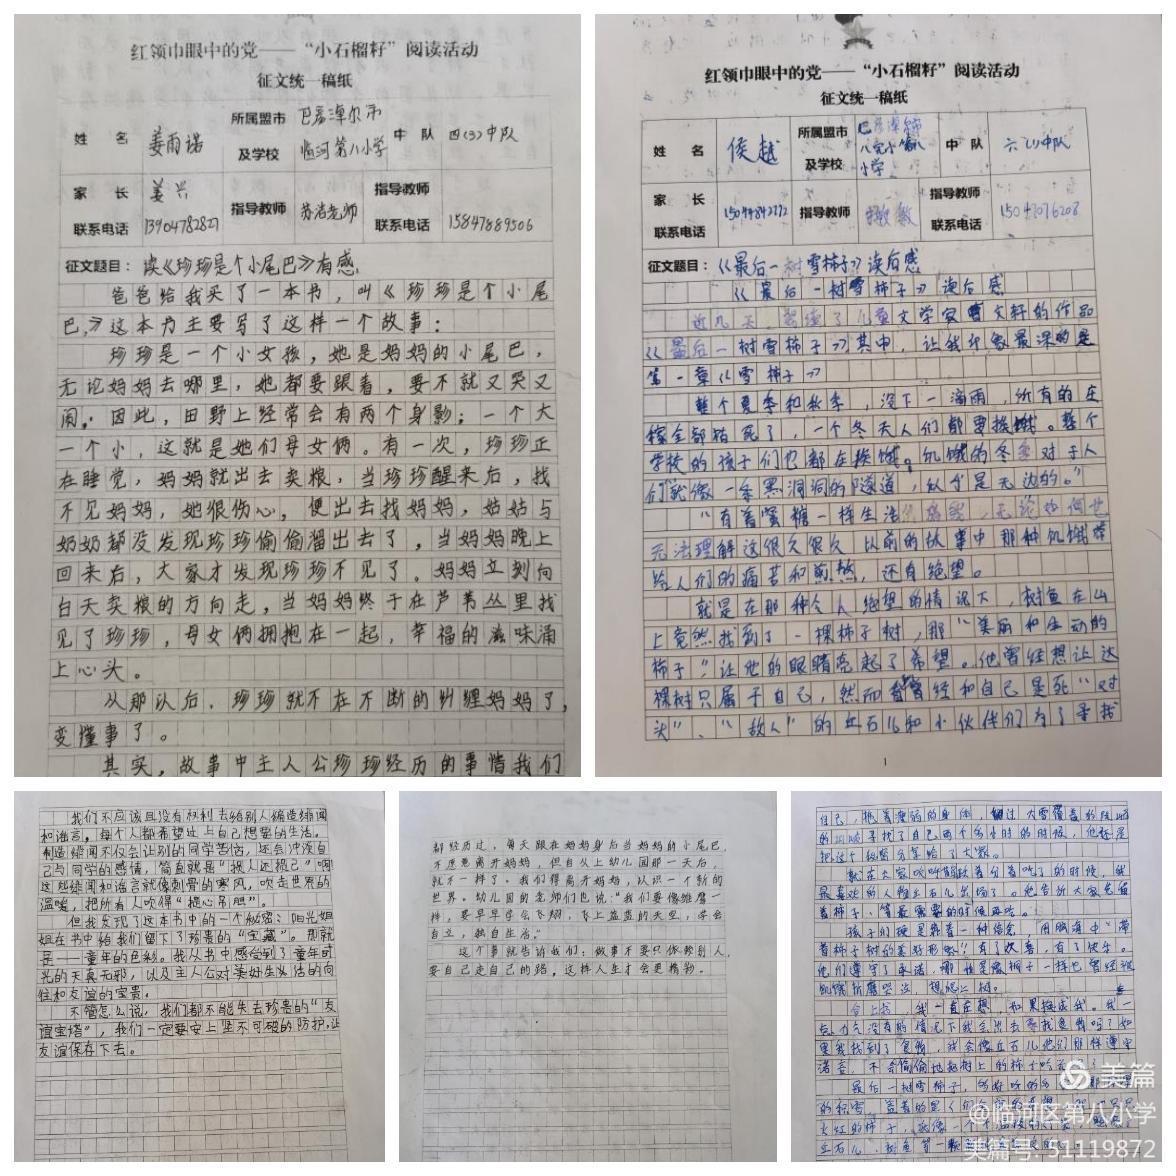 红领巾眼中的党——“小石榴籽”阅读活动
征文统一稿纸
姓 名 姜雨诺 所属盟市及学校 巴彦淖尔市临河第八小学 中 队 四(3)中队
家 长 姜兴
联系电话 13904782827 指导教师 苏洁老师 指导教师联系电话 15847889506
征文题目：读《珍珍是个小尾巴》有感
爸爸给我买了一本书，叫《珍珍是个小尾
巴》这本书主要写了这样一个故事：
珍珍是一个小女孩，她是妈妈的小尾巴，
无论妈妈去哪里，她都要跟着，要不就又哭又
闹。因此，田野上经常会有两个身影；一个大
一个小，这就是她们母女俩。有一次，珍珍正
在睡觉，妈妈就出去卖粮，当珍珍醒来后，找
不见妈妈，她很伤心，便出去找妈妈，姑姑与
奶奶都没发现珍珍偷偷溜出去了，当妈妈晚上
回来后，大家才发现珍珍不见了。妈妈立刻向
白天卖粮的方向走，当妈妈终于在芦苇丛里找
见了珍珍，母女俩拥抱在一起，幸福的滋味涌
上心头。
从那以后，珍珍就不在不断的纠缠妈妈了，
变懂事了。
其实，故事中主人公珍珍经历的事情我们
红领巾眼中的党——“小石榴籽”阅读活动
征文统一稿纸
姓 名 侯越 所属盟市及学校 小学 中 队 六(1)中队
家 长
联系电话 指导教师 敏 指导教师联系电话
征文题目：《最后一树雪柿子》读后感
《最后一树雪柿子》读后感
近几天，我读了儿童文学家曹文轩的作品
《最后一树雪柿子》其中，让我印象最深的是
第一章《雪柿子》
整个夏季和秋季，没下一滴雨，所有的庄
稼全部枯死了，一个冬天人们都要挨饿。整个
学校的孩子们也都在挨饿。饥饿的冬季对于人
们就像一条黑洞洞的隧道，似乎是无边的。”
“有着蜜糖一样生活 无论如何也
无法理解这很久很久以前的故事中那种饥饿带
给人们的痛苦和煎熬，还有绝望。
就是在那种令人绝望的情况下，树鱼在山
上竟然找到了一棵柿子树，那“美丽和生动的
柿子”让他的眼睛亮起了希望。他曾经想让这
棵树只属于自己，然而曾经和自己是死“对
头”、“敌人”的丘石儿和小伙伴们为了寻找
1
我们不应该且没有权利去给别人编造绯闻
和谣言，每个人都希望过上自己想要的生活。
制造绯闻不仅会让别的同学苦恼，还会冲淡自
己与同学的感情，简直就是“损人还损己”啊
这些绯闻和谣言就像刺骨的寒风，吹走世界的
温暖，把所有人吹得“提心吊胆”。
但我发现了这本书中的一个秘密：阳光姐
姐在书中给我们留下了珍贵的“宝藏”。那就
是——童年的色彩。我从书中感受到了童年时
光的天真无邪，以及主人公对美好生活的向
往和友谊的宝贵。
不管怎么说，我们都不能失去珍贵的“友
谊宝塔”，我们一定要安上坚不可破的防护，让
友谊保存下去。
都经历过，每天跟在妈妈身后当妈妈的小尾巴，
不愿意离开妈妈，但自从上幼儿园那一天后，
就不一样了。我们得离开妈妈，认识一个新的
世界。幼儿园的老师们也说：“我们要像雏鹰一
样，要早早学会飞翔，飞上蓝蓝的天空，学会
自立，独自生活。”
这个事就告诉我们：做事不要只依赖别人，
要自己走自己的路，这样人生才会更精彩。
自己，拖着瘦弱的身体，
找了自己两个多小时的时候，他还是
把这个秘密分享给了大家。
就在大家
最喜欢的人物丘石儿出场了。他告诉大家先留
着柿子，等最需要的时候再吃。
孩子们硬是靠着一种信念，
着柿子树的美好形象！有了欢喜，有了快乐。
他们遵守了承诺，
我一直在想，如果换成我。我一
点力气没有的情况下我会出去寻找鱼鸭吗？如
果我找到了食物，我会像丘石儿他们那样遵守
诺言，不会偷偷地把树上的柿子吃
最后一树雪柿子，
的积雪，
火红的柿子，
丘石儿、树鱼等一
美篇
@临河区第八小学
美篇号：51119872